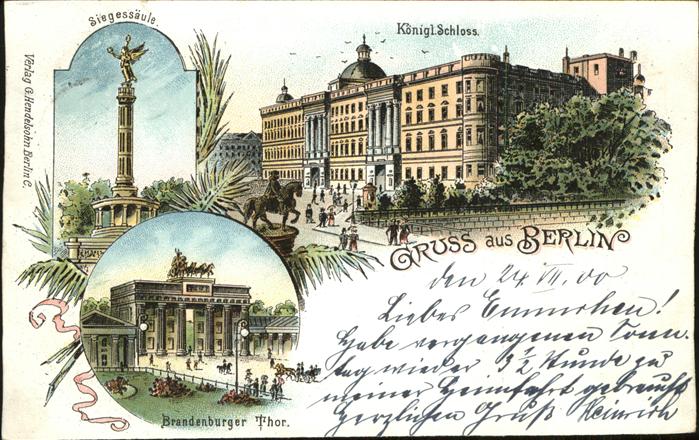 Siegessäule.
Königl. Schloss.
Verlag G. Hendelsohn Berlin C.
GRUSS aus BERLIN
den 24. VII. 00
Liebes Emmchen!
Habe vergangenen Sonn-
tag wieder 3 1/2 Stunde zu
meiner Heimfahrt gebraucht
herzlichen Gruß Heinrich
Brandenburger Thor.